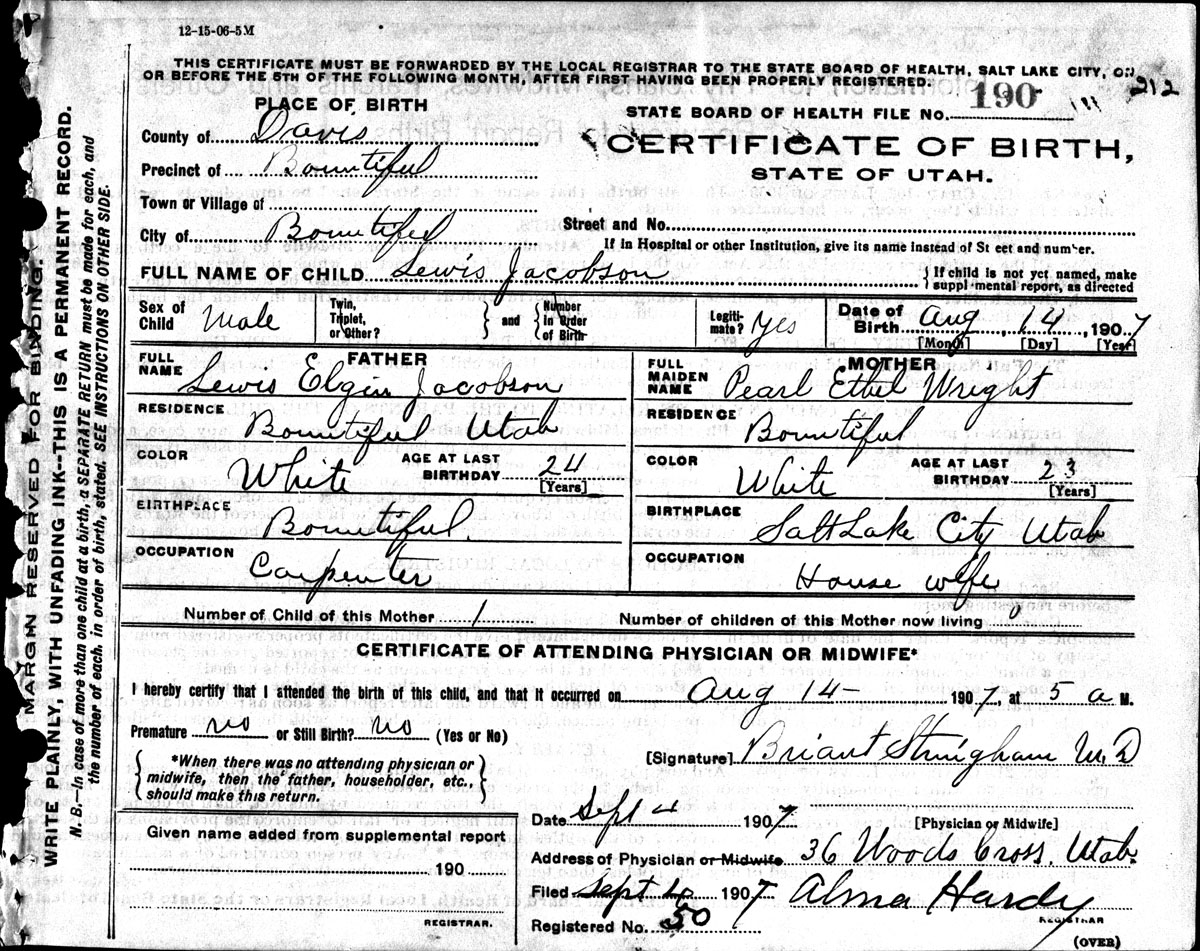 12-15-06-5M
THIS CERTIFICATE MUST BE FORWARDED BY THE LOCAL REGISTRAR TO THE STATE BOARD OF HEALTH, SALT LAKE CITY, ON
OR BEFORE THE 5TH OF THE FOLLOWING MONTH, AFTER FIRST HAVING BEEN PROPERLY REGISTERED.
212
PLACE OF BIRTH
STATE BOARD OF HEALTH FILE No. 190
County of Davis
CERTIFICATE OF BIRTH,
Precinct of Bountiful
STATE OF UTAH.
Town or Village of
City of Bountiful
Street and No.
If in Hospital or other Institution, give its name instead of St eet and number.
FULL NAME OF CHILD Lewis Jacobson
{ If child is not yet named, make
suppl mental report, as directed
Sex of Child Male
Twin, Triplet, or Other? } and { Number In Order of Birth
Legiti-mate? yes
Date of Birth Aug, 14, 1907
[Month] [Day] [Year]
FATHER
FULL NAME Lewis Elgin Jacobson
MOTHER
FULL MAIDEN NAME Pearl Ethel Wright
RESIDENCE Bountiful Utah
RESIDENCE Bountiful
COLOR White AGE AT LAST BIRTHDAY 24 [Years]
COLOR White AGE AT LAST BIRTHDAY 23 [Years]
BIRTHPLACE Bountiful.
BIRTHPLACE Salt Lake City Utah
OCCUPATION Carpenter
OCCUPATION House wife
Number of Child of this Mother 1
Number of children of this Mother now living 0
CERTIFICATE OF ATTENDING PHYSICIAN OR MIDWIFE*
I hereby certify that I attended the birth of this child, and that it occurred on Aug 14- 1907, at 5 a M.
Premature no or Still Birth? no (Yes or No)
[Signature] Briant Stringham M.D
{ *When there was no attending physician or
midwife, then the father, householder, etc.,
should make this return. }
Date Sept 4 1907
[Physician or Midwife]
Given name added from supplemental report
190
REGISTRAR.
Address of Physician or Midwife 36 Woods Cross, Utah.
Filed Sept 4 1907 Alma Hardy
REGISTRAR
Registered No. 50
(OVER)
MARGIN RESERVED FOR BINDING.
WRITE PLAINLY, WITH UNFADING INK--THIS IS A PERMANENT RECORD.
N. B.—In case of more than one child at a birth, a SEPARATE RETURN must be made for each, and
the number of each, in order of birth, stated. SEE INSTRUCTIONS ON OTHER SIDE.